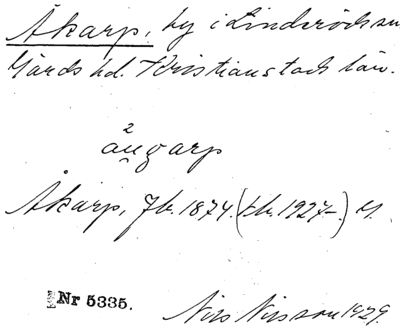 Åkarp, by i Linderöds sn
Gärds hd. Kristianstads län.
2
åugarp
Åkarp, Jb. 1874. (tk. 1927-.) H.
Nr 5335.
Nils Nilsson 1929.